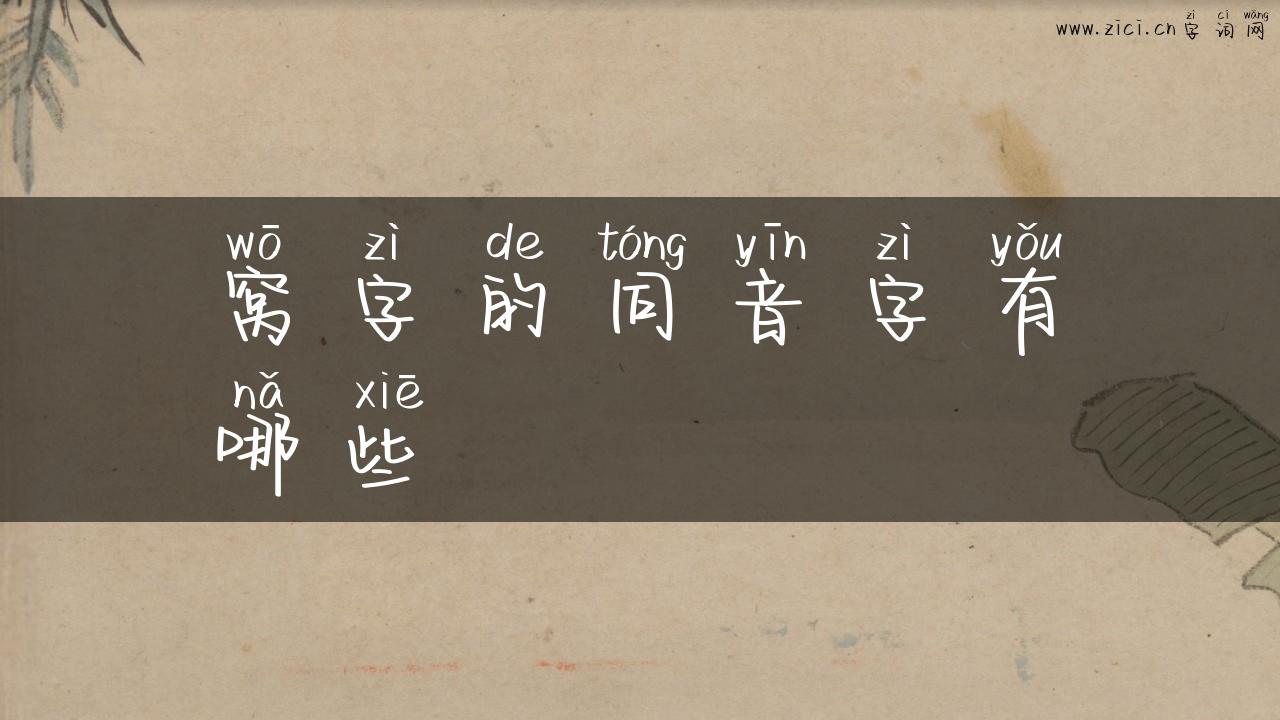 zì cí wǎng
www.zici.cn 字 词 网
wō zì de tóng yīn zì yǒu
窝 字 的 同 音 字 有
nǎ xiē
哪 些